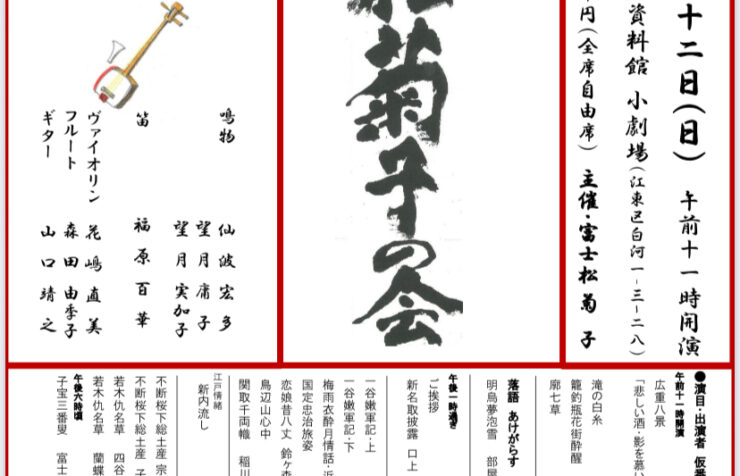 十二日(日) 午前十一時開演
資料館 小劇場(江東区白河一-三-二八)
円(全席自由席) 主催・富士松菊子
菊子の会
鳴物 仙波宏多
望月庸子
望月実加子
笛 福原百華
ヴァイオリン 花嶋直美
フルート 森田由季子
ギター 山口靖之
●演目・出演者 仮番
午前十一時開演
広重八景
「悲しい酒・影を慕い
滝の白糸
籠釣瓶花街酔醒
廓七草
落語 あけがらす
明烏夢泡雪 部屋
午後一時過ぎ
ご挨拶
新名取披露 口上
一谷嫩軍記・上
一谷嫩軍記・下
梅雨衣酔月情話
国定忠治旅姿
恋娘昔八丈 鈴ヶ森
鳥辺山心中
関取千両幟 稲川
江戸情緒
新内流し
不断桜下総土産 宗
不断桜下総土産 子
若木仇名草 四谷
若木仇名草 蘭蝶
午後六時頃
子宝三番叟 富士